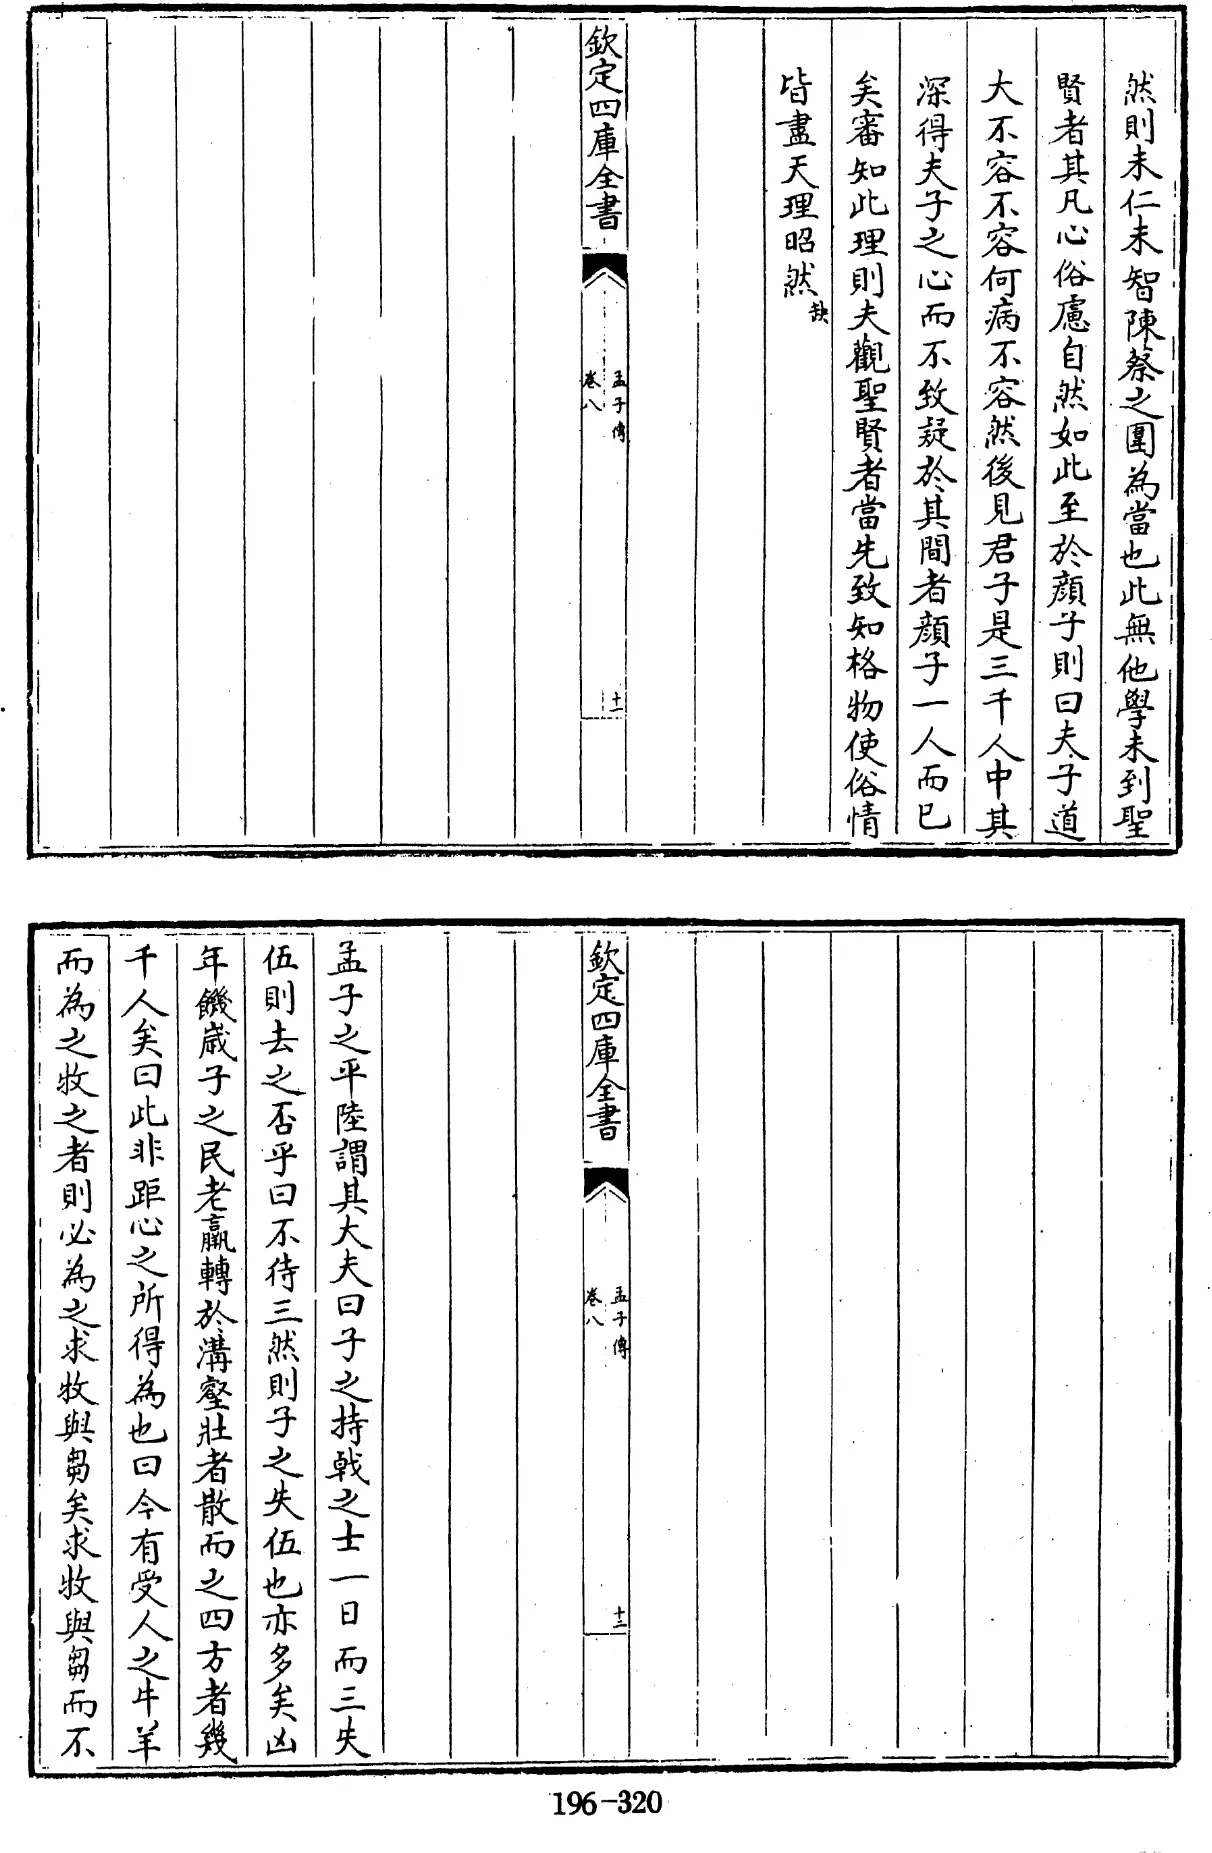 然則未仁未智陳蔡之圍為當也此無他學未到聖
賢者其凡心俗慮自然如此至於顔子則曰夫子道
大不容不容何病不容然後見君子是三千人中其
深得夫子之心而不致疑於其間者顔子一人而已
矣審知此理則夫觀聖賢者當先致知格物使俗情
皆盡天理昭然缺
欽定四庫全書
孟子傳
卷八
十一
欽定四庫全書
孟子傳
卷八
十二
孟子之平陸謂其大夫曰子之持戟之士一日而三失
伍則去之否乎曰不待三然則子之失伍也亦多矣凶
年饑歲子之民老羸轉於溝壑壯者散而之四方者幾
千人矣曰此非距心之所得為也曰今有受人之牛羊
而為之牧之者則必為之求牧與芻矣求牧與芻而不
196-320